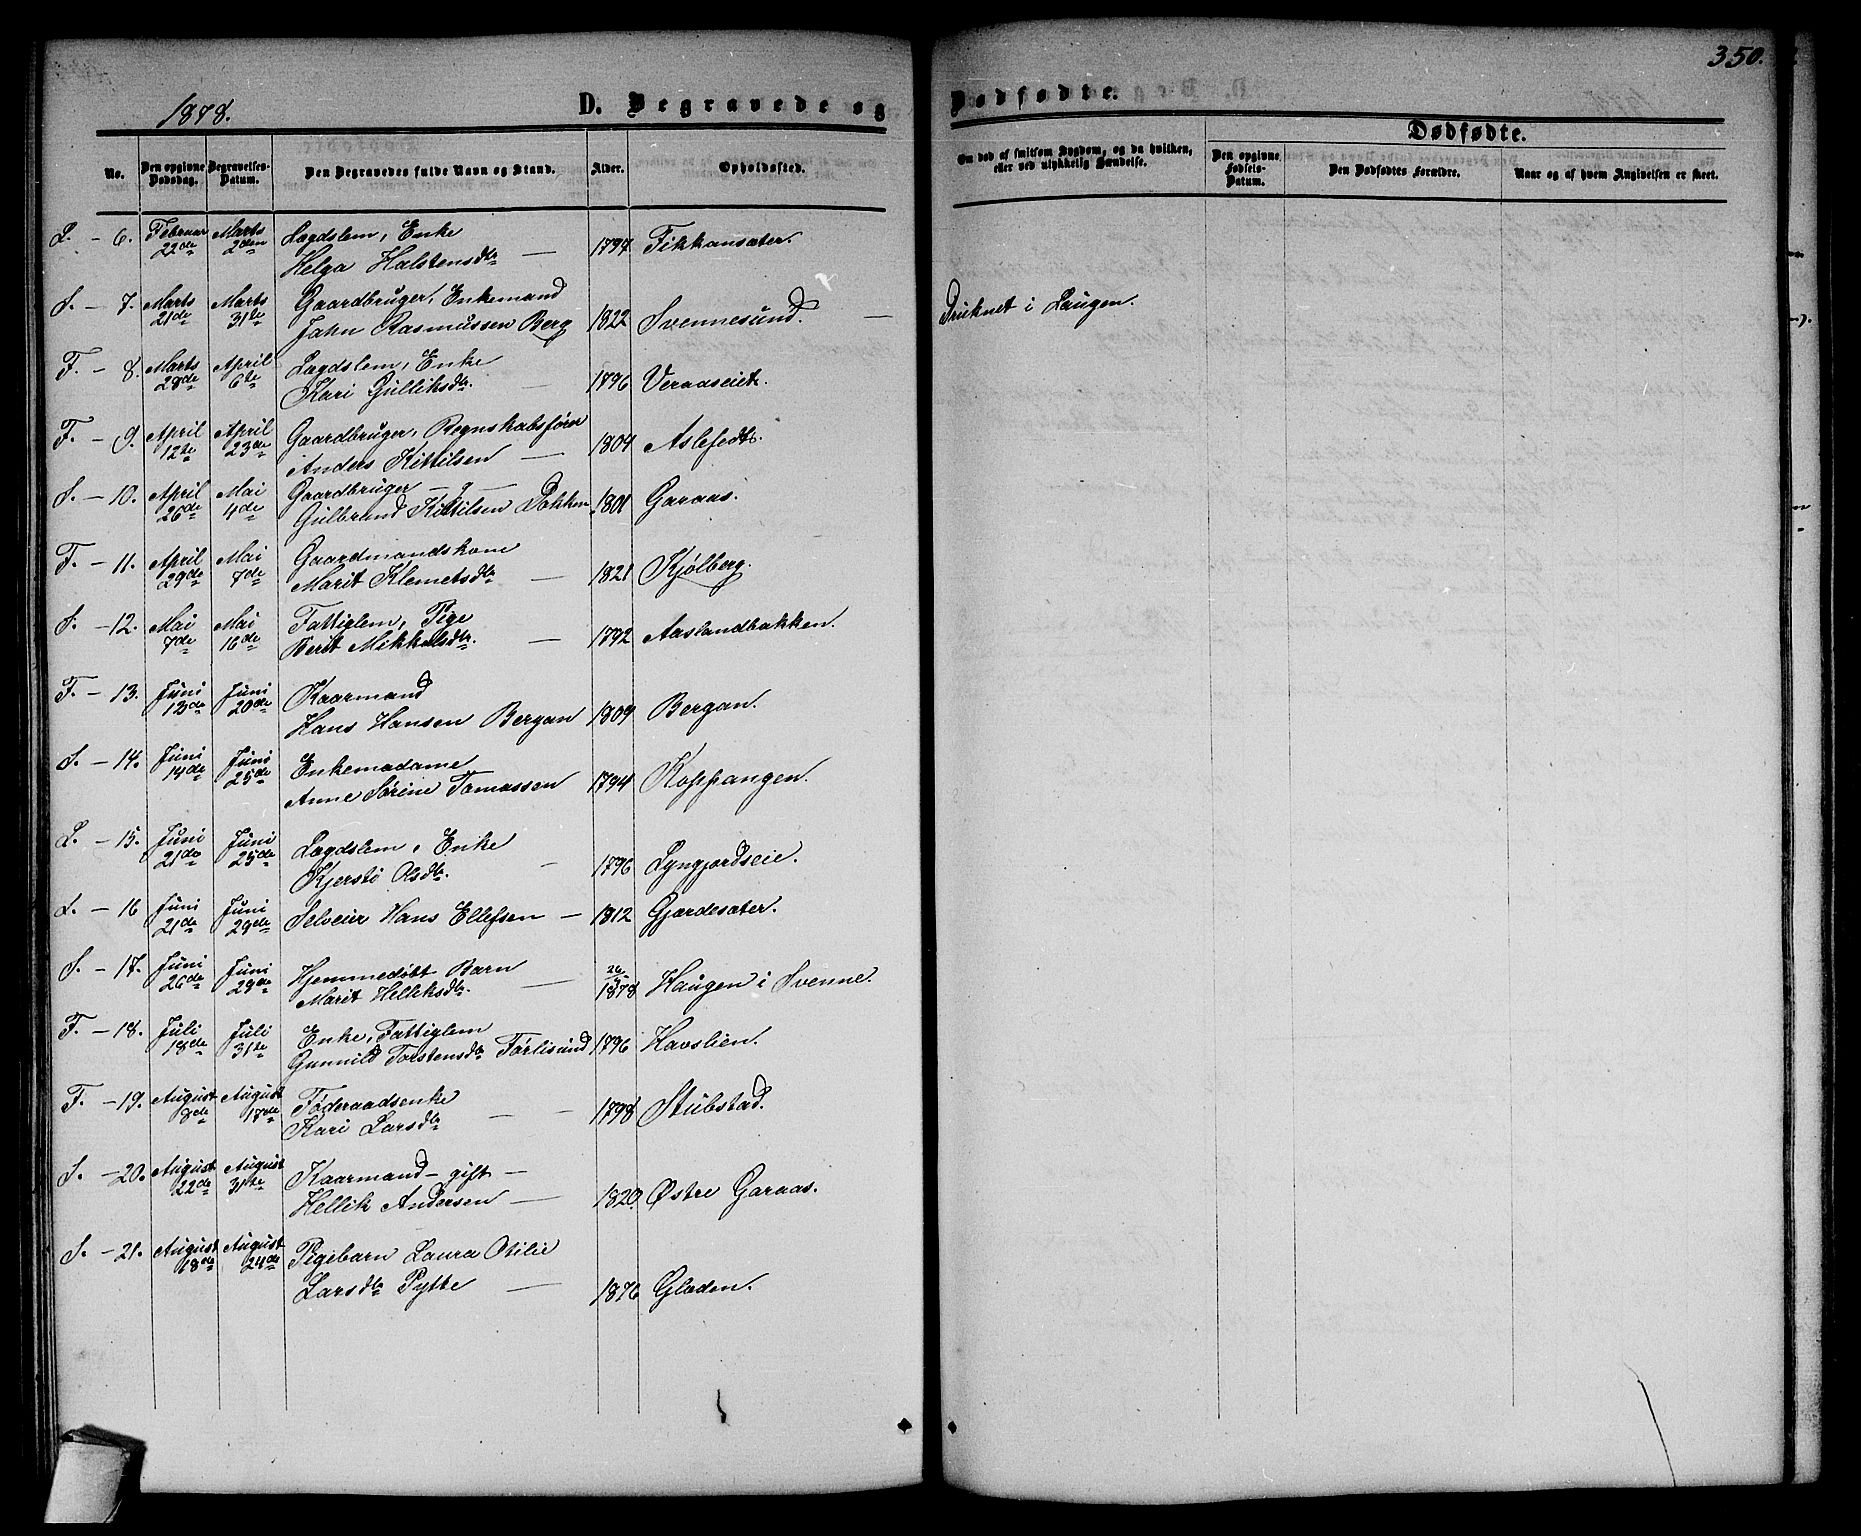 350.
1878. D. Begravede og Dødfødte.
Dødfødte.
No.
Den opgivne Dødsdag.
Begravelses-Datum.
Den Begravedes fulde Navn og Stand.
Alder.
Opholdssted.
Om død af smitsom Sygdom, og da hvilken, eller ved ulykkelig Hændelse.
Den opgivne Fødsels-Datum.
Den Dødfødtes Forældre.
Naar og af hvem Angivelsen er skeet.
L. - 6. Februar Marts Lægdslem, Enke
22de 2den Helga Halstensdtr — 1794 Fikkansæter.
S. - 7. Marts Marts Gaardbruger, Enkemand
21de 31te Jahn Rasmussen Berg 1822 Svennesund. — Druknet i Laugen.
F. - 8. Marts April Lægdslem, Enke
28de 6te Kari Gulliksdtr. — 1796 Veraaseiet.
F. - 9. April April Gaardbruger, Regnskabsfører
12te 23de Anders Kittilsen — 1804 Aslefedt.
S. - 10. April Mai Gaardbruger
26de 4de Gulbrand Kittilsen Dokken 1801 Garaas.
F. - 11. April Mai Gaardmandskone
29de 7de Marit Klemetsdtr — 1821 Kjølberg.
S. - 12. Mai Mai Fattiglem, Pige
7de 16de Berit Mikkelsdtr. — 1792 Aaslandbakken.
F. - 13. Juni Juni Kaarmand
13de 20de Hans Hansen Bergan 1809 Bergan.
S. - 14. Juni Juni Enkemadame
14de 25de Anne Sørine Tomassen 1794 Koppangen.
L. - 15. Juni Juni Lægdslem, Enke
21de 25de Kjersti Olsdtr. — 1796 Lyngjordseie.
L. - 16 Juni Juni Selveier Hans Ellefsen — 1812 Gjærdesæter.
21de 29de
S. - 17. Juni Juni Hjemmedøbt Barn
26de 29de Marit Helliksdtr. — 1878 Haugen i Svenne.
F. - 18. Juli Juli Enke, Fattiglem
18de 31te Gunnild Torstensdtr Førlisund 1796 Havslien.
F. - 19. August August Føderaadsenke
8de 17de Kari Larsdtr — — 1798 Stubstad.
S. - 20. August August Kaarmand - gift -
22de 31te Hellik Andersen — 1820. Østre Garaas.
S. - 21. August August Pigebarn Laura Otilie
18de 24de Larsdtr Pytte — 1876 Glæden.